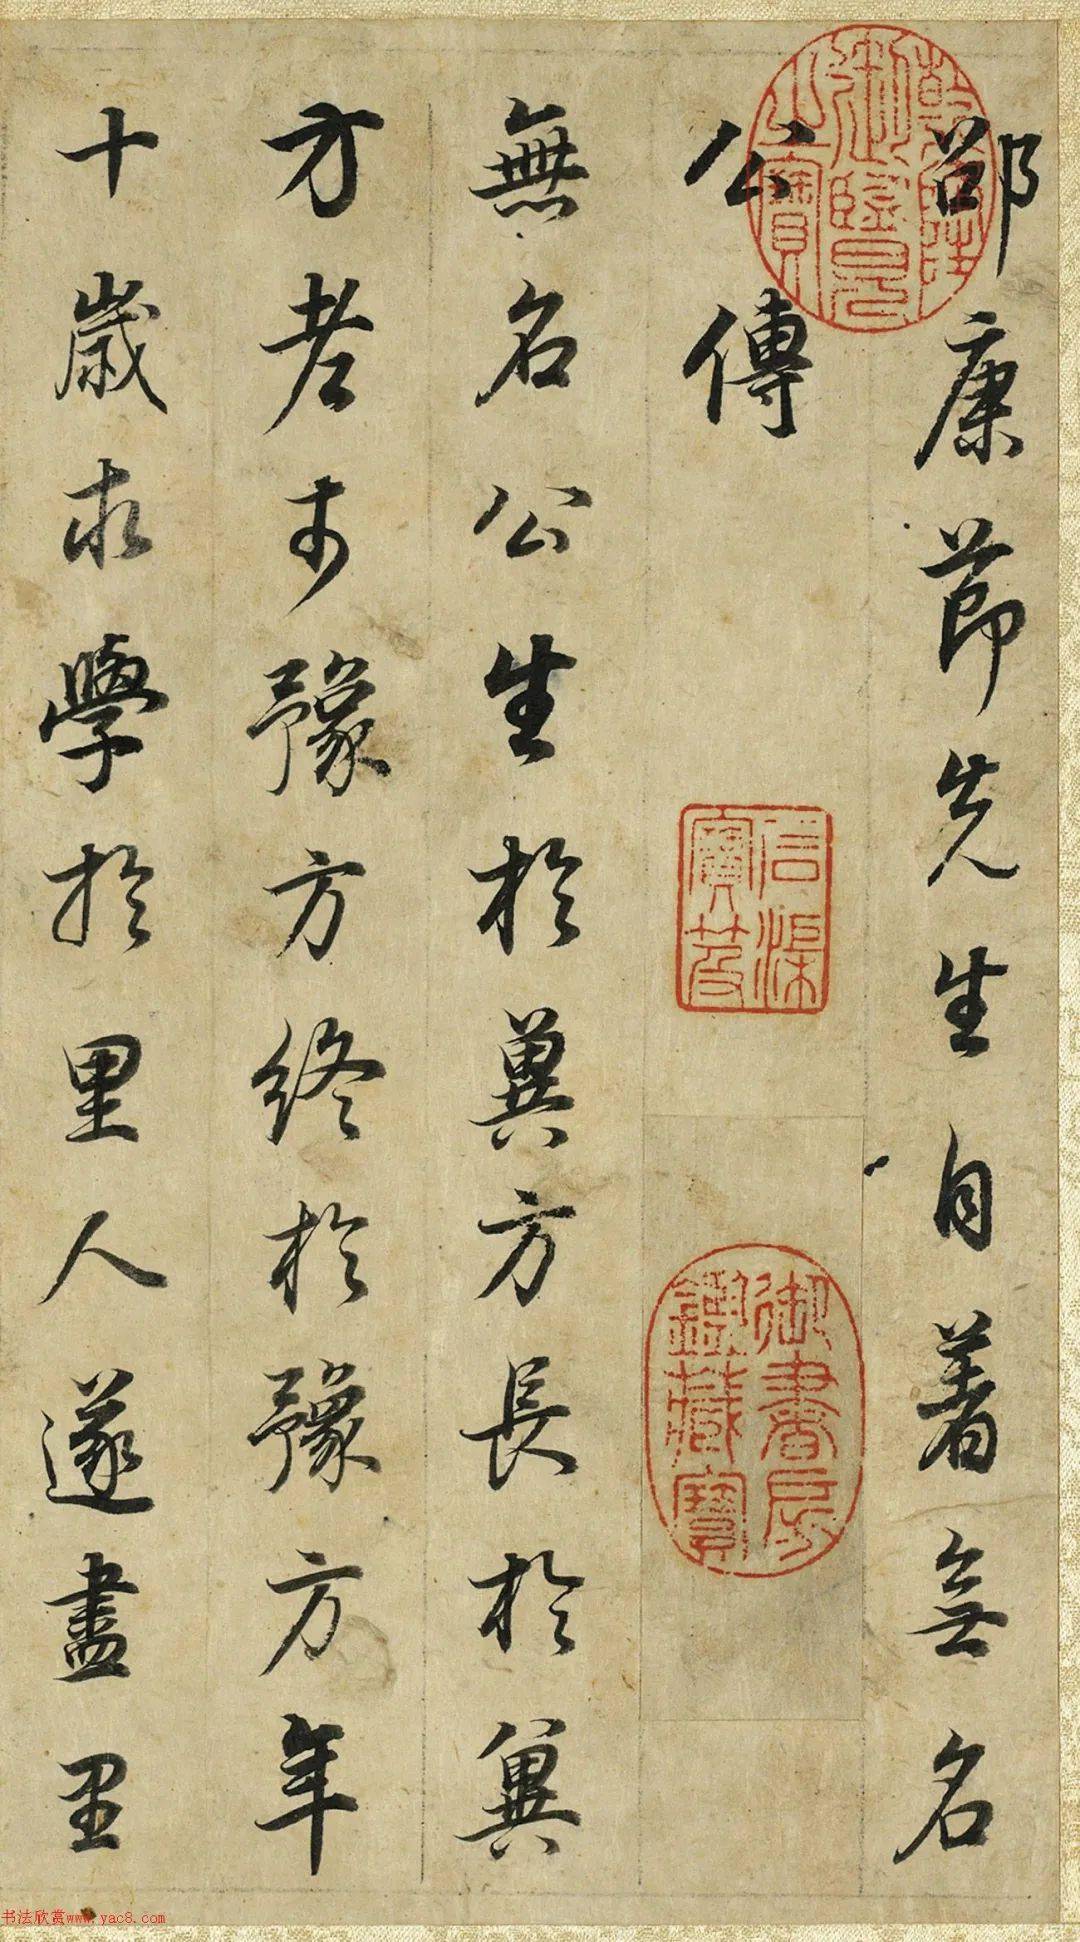 邵康節先生自著無名
公傳
無名公生於冀方長於冀
方老於豫方終於豫方年
十歲求學於里人遂盡里
乾隆御覽之寶
御書房鑑藏寶
书法欣赏www.yac8.com